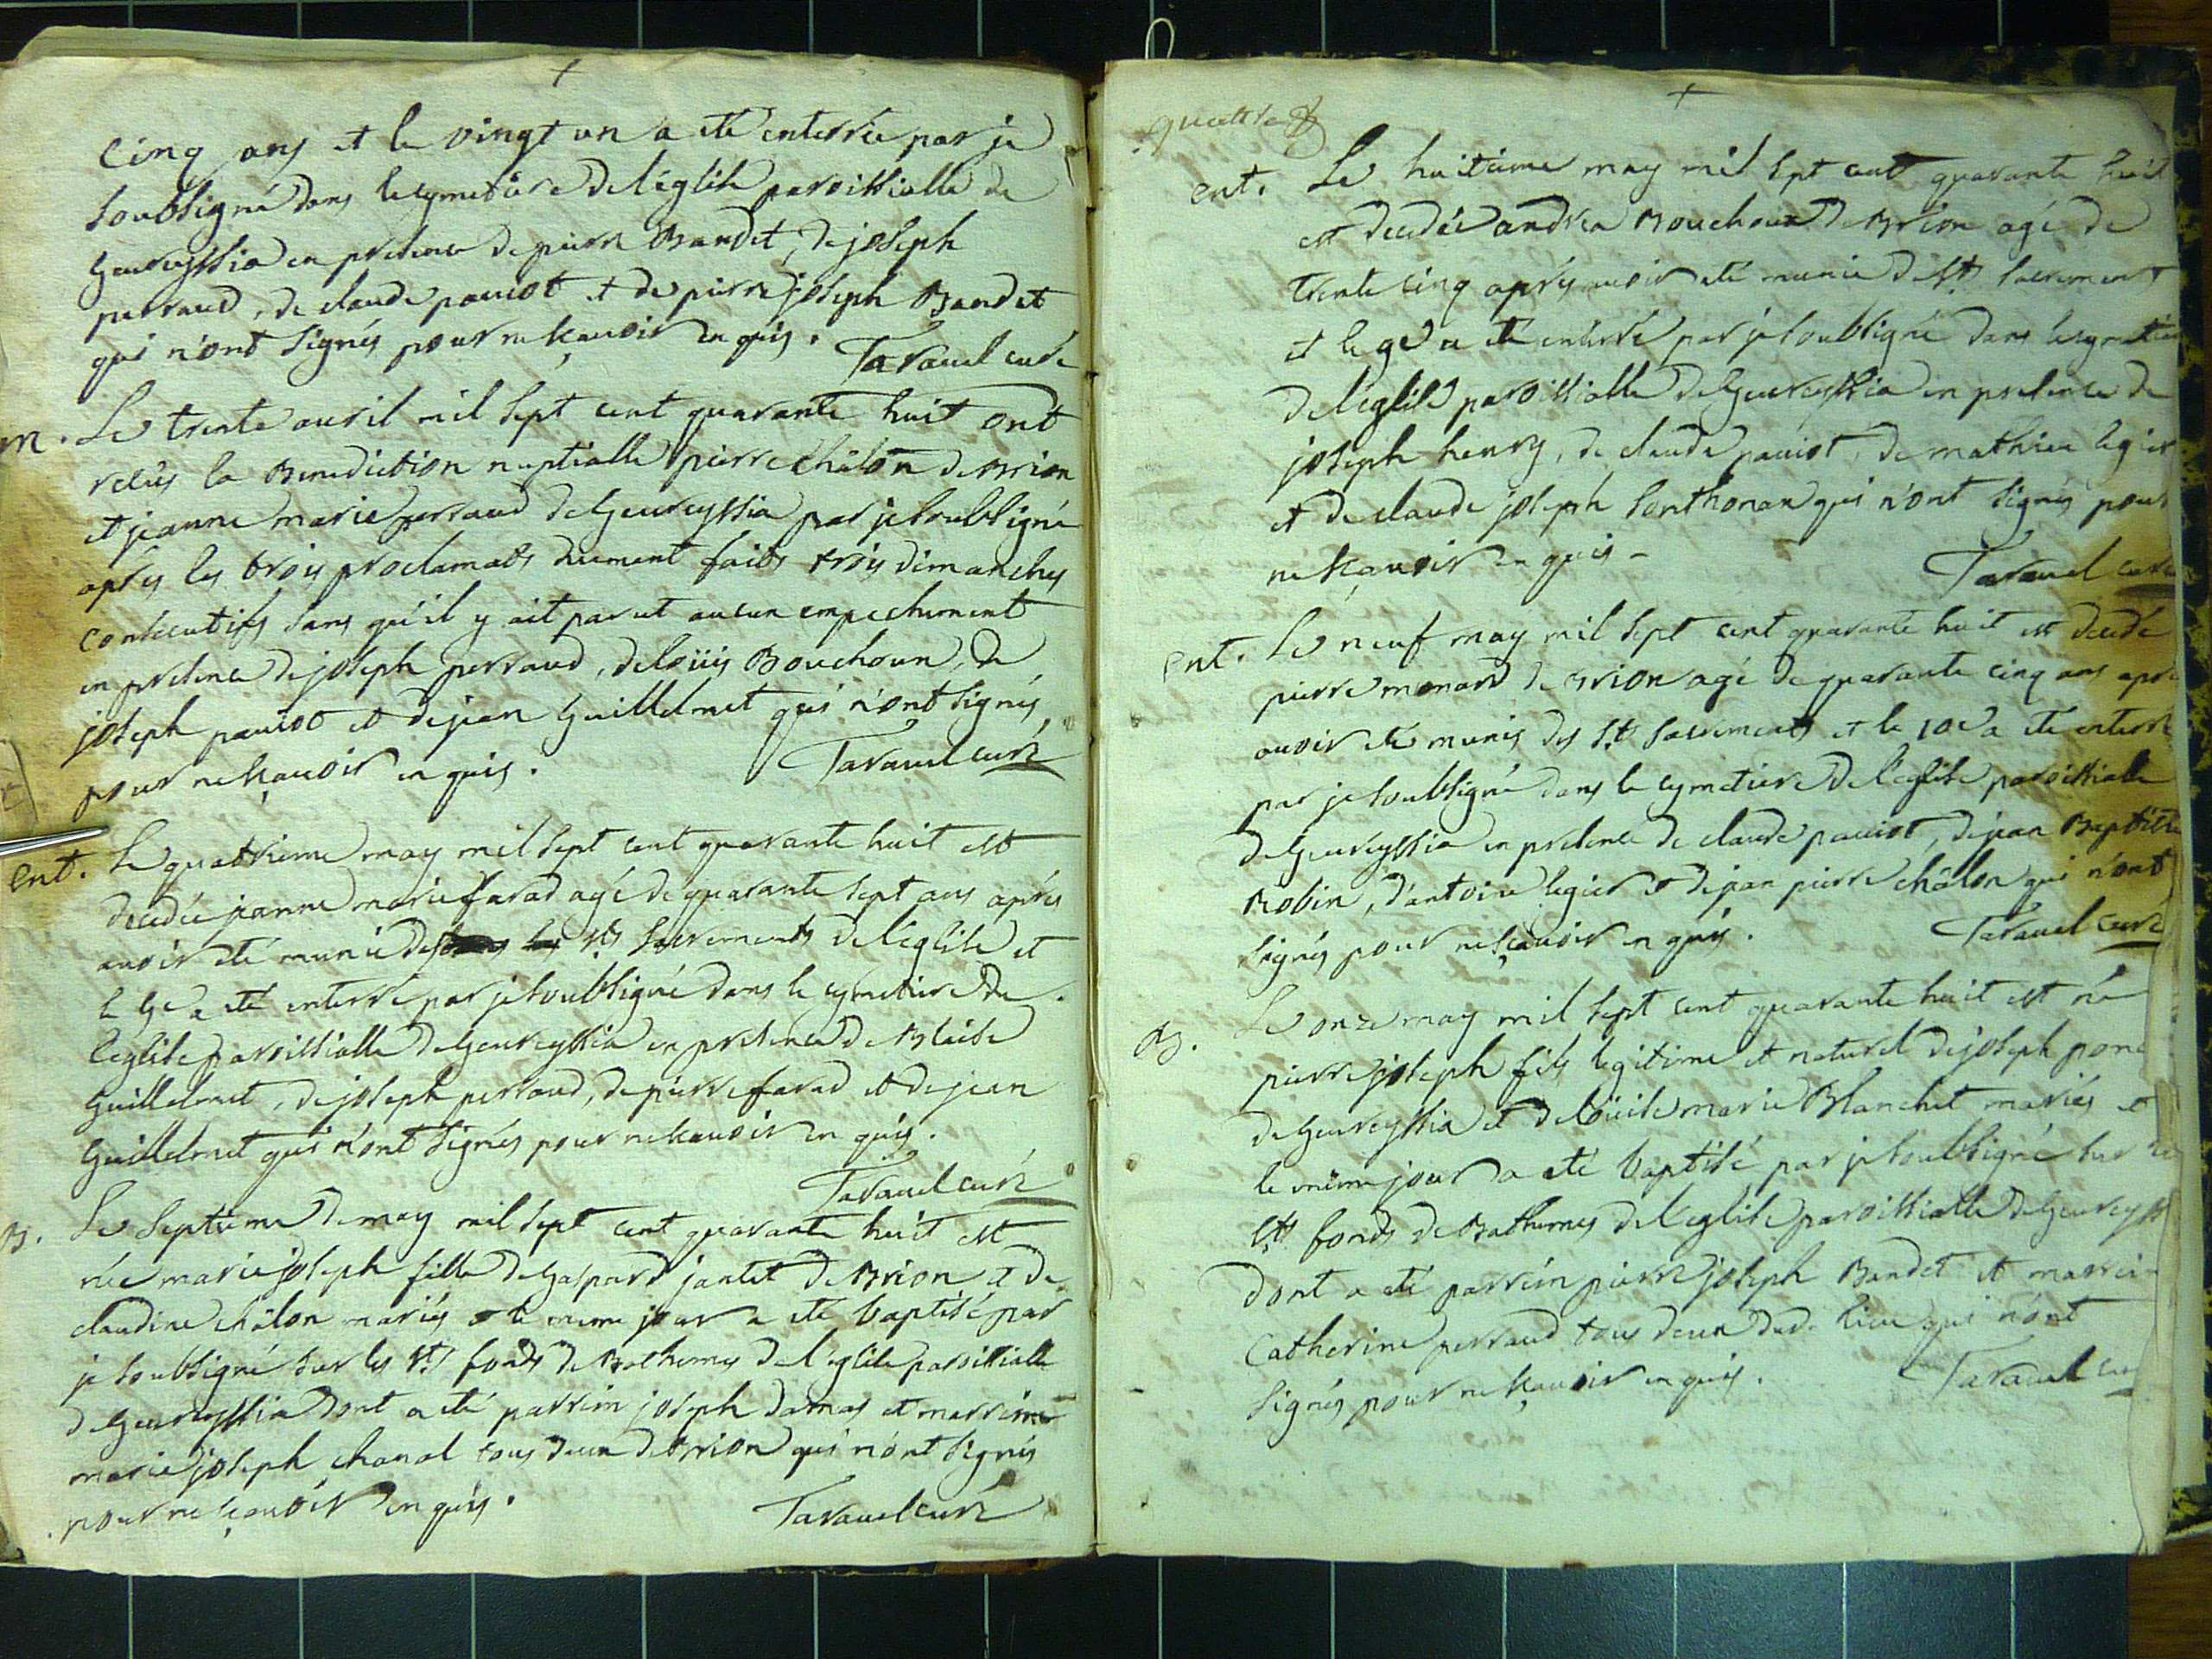 cinq ans et le vingt un a eté enterrée par je
soubsigné dans le cymetiere de l'église paroissialle de
Geureyssia en presence de pierre Bandet, de joseph
perraud, de claude pauiot et de pierre joseph Bandet
qui n'ont signés pour ne sçauoir en quis.
Tarauel curé
m. Le trente auril mil sept cent quarante huit ont
recûs la Benediction nuptialle pierre châlon de Brion
et jeanne marie perraud de Geureyssia par je soubsigné
aprés les trois proclamats duement faits trois dimanches
consecutifs sans qu'il y ait parut aucun empechement
en presence de joseph perraud, de loüis Bouchoux, de
joseph pauiot et de jean Guillelmet qui n'ont signés
pour ne sçauoir en quis.
Tarauel curé
Ent. Le quatrieme may mil sept cent quarante huit est
decedée jeanne marie farad agé de quarante sept ans aprés
auoir eté munie des sts sacrements de l'eglise et
le 5e a eté enterré par je soubsigné dans le cymetiere de
l'eglise paroissialle de Geureyssia en presence de Blaise
Guillelmet, de joseph perraud, de pierre farad et de jean
Guillelmet qui n'ont signés pour ne sçauoir en quis.
Tarauel curé
B. Le septieme de may mil sept cent quarante huit est
née marie joseph fille de Gaspard jantet de Brion et de
claudine châlon mariés et le meme jour a eté baptisé par
je soubsigné sur les sts fonds de Bathemes de l'eglise paroissialle
de Geureyssia dont a eté parrein joseph damas et marreine
marie joseph chanal tous deux de Brion qui n'ont signés
pour ne sçauoir en quis.
Tarauel curé
quattre
ent. Le huitieme may mil sept cent quarante huit
est decedée andrea Bouchoux de Brion agé de
trente cinq aprés auoir eté munie de sts sacrement
et le 9e a eté enterré par je soubsigné dans le cymetiere
de l'eglise paroissialle de Geureyssia en presence de
joseph henry, de claude pauiot, de mathieu legier
et de claude joseph sonthonax qui n'ont signés pour
ne sçauoir en quis
Tarauel curé
ent. Le neuf may mil sept cent quarante huit est decedé
pierre monard de Brion agé de quarante cinq ans apré
auoir eté munis des sts sacrements et le 10e a eté enterré
par je soubsigné dans le cymetiere de l'eglise paroissialle
de Geureyssia en presence de claude pauiot, de jean Baptiste
Robin, d'antoine legier et de jean pierre châlon qui n'ont
signés pour ne sçauoir en quis.
Tarauel curé
B. Le onze may mil sept cent quarante huit est né
pierre joseph fils legitime et naturel de joseph ponc
de Geureyssia et de loüise marie Blanchet mariés et
le même jour a eté baptisé par je soubsigné sur les
sts fonds de Bathemes de l'eglise paroissialle de Geureyss
dont a eté parrein pierre joseph Bandet et marrein
Catherine perraud tous deux dud. lieu qui n'ont
signés pour ne sçauoir en quis.
Tarauel cu